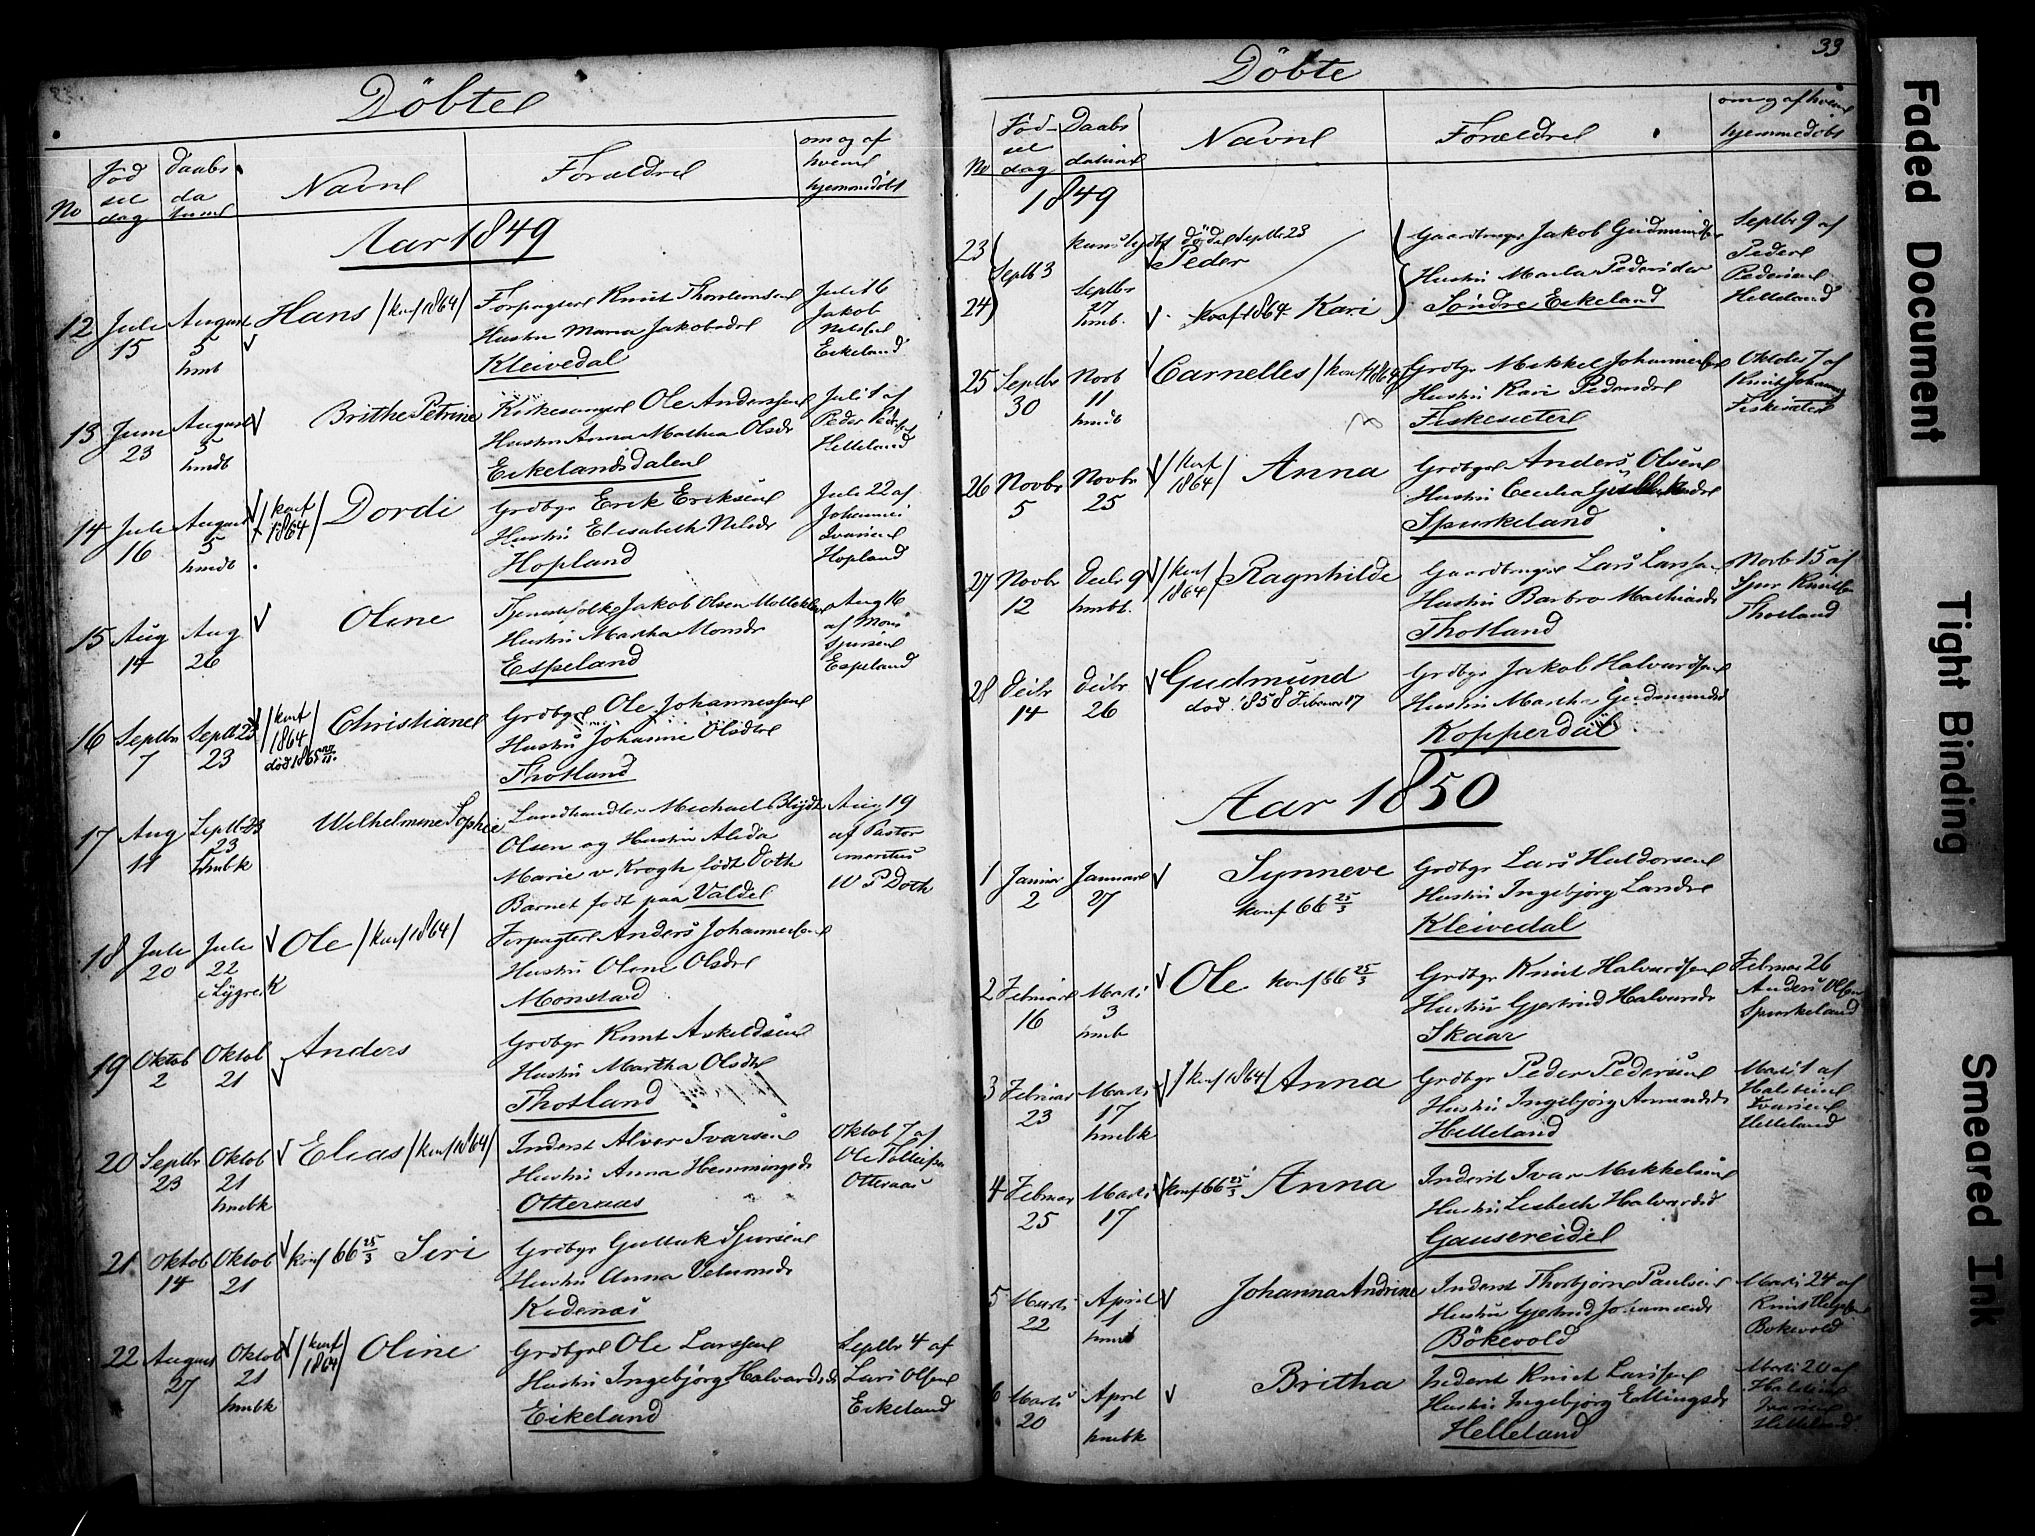 Döbte
No
Fød
sel
dag
Daabs
da
tum
Navne
Forældre
om og af
hvem
hjemmedøbt
Aar 1849
12 Juli 15 August 5 hmb Hans /konf 1864/
Forpagter Knut
Hustru Maria Jakobsdr
Kleivedal
Juli 16
Jakob
Nilsen
Eikeland
13 Juni 23 August 5 hmdb Brithe Petrine
Kirkesanger Ole Anderssen
Hustru Anna Mathea Olsdr
Eikelandsdalen
Juli 1 af
Peder
Helleland
14 Juli 16 August 5 hmdb /konf 1864/ Dordi
Grdbgr Erik Eriksen
Hustru Elisabeth Nilsdr
Hopland
Juli 22 af
Johannes
Ivarsen
Hopland
15 Aug 14 Aug 26 Oline
Tjenestfolk Jakob Olsen
Hustru Martha Monsdr
Espeland
Aug 16
af Mons
Sjursen
Espeland
16 Septbr 7 Septb 23 23 /konf 1864/ død 1865 Christiane
Grdbgr Ole Johannessen
Hustru Johanne Olsdr
Thotland
17 Aug 11 Septb 23 23 hmbk Wilhelmine Sophie
Landhandler Michael Blydt
Olsen og Hustru Alida
Marie v Krogh født Doth
Barnet født paa Valdel
Aug 19
af Pastor
emeritus
W P Doth
18 Juli 20 Juli 22 i Lygre K Ole /konf 1864/
Forpagter Anders Johannessen
Hustru Oline Olsdr
Monstad
19 Oktob 2 Oktob 21 Anders
Grdbgr Knut Askildsen
Hustru Martha Olsdr
Thotland
20 Septbr 23 Oktob 21 hmbk Elias /konf 1864/
Inderst Alver Ivarsen
Hustru Anna Hemmingsdr
Otteraas
Oktob 7 af
Ole
Otteraas
21 Oktob 14 Oktob 21 konf 66 25/3 Siri
Grdbgr Gulluk Sjursen
Hustru Anna
Kidenes
22 August 27 Oktob 21 hmbk /konf 1864/ Oline
Grdbgr Ole Larssen
Hustru Ingebjørg Halvardsdr
Eikeland
Septbr 4 af
Lars Olsen
Eikeland
33
Döbte
No
Fød-
sel
dag
Daabs
datum
Navne
Forældre
om og af hvem
hjemmedøbt
1849
23 Septb 3 døde Septbr 23
Peder
24 Septbr 27 hmb. konf 1864 Kari
Gaardbruger Jakob Gudmundsen
Hustru Marta Pedersdr
Søndre Eikeland
Septbr 9 af
Peder
Pedersen
Helleland
25 Septbr 30 Novb 11 hmdb Carnelles /konf 1864/
Grdbgr Mikkel Johannessen
Hustru Kari Pedersdr
Fiskeseter
Oktober 7 af
Knut Johannes
Fiskeseter
26 Novbr 5 Novbr 25 /konf 1864/ Anna
Grdbgr Anders Olsen
Hustru Cecilia
Spurkeland
27 Novbr 12 Decbr 9 hmbt. /konf 1864/ Ragnhilde
Gaardbruger Lars Larssen
Hustru Barbro Mathiasdr
Thotland
Novb 15 af
Sjur Knuts
Thotland
28 Decbr 14 Decbr 26 Gudmund
død 1858 Februar 17
Grdbgr Jakob Halvardsen
Hustru Martha Gudmundsdr
Kopperdal
Aar 1850
1 Januar 2 Januar 27 Synneve
konf 66 25/3
Grdbgr Lars Haldorsen
Hustru Ingebjørg Larsdr
Kleivedal
2 Februar 16 Marts 3 hmb Ole konf 66 25/3
Grdbgr Knut Halvardsen
Hustru Gjertrud Halvorsdr
Skaar
Februar 26
Anders Olsen
Spurkeland
3 Februar 23 Marts 17 hmbk /konf 1864/ Anna
Grdbgr Peder Pedersen
Hustru Ingebjørg Amundsdr
Helleland
Marts 1 af
Halstein
Ivarsen
Helleland
4 Februar 25 Marts 17 konf 66 25/3 Anna
Inderst Ivar Mikkelsen
Hustru Lisbeth Halvardsd
Gausereidet
5 Marts 22 April 1 Johanna Andrine
Inderst Thorbjørn Paulsen
Hustru Gjertrud Johannesdr
Bökevold
Marts 24 af
Knut
Bokevold
6 Marts 20 April 1 hmbk Britha
Inderst Knut Larssen
Hustru Ingebjørg Edlingsdr
Helleland
Marts 20 af
Halstein
Ivarsen
Helleland
Faded Document
Tight Binding
Smeared Ink